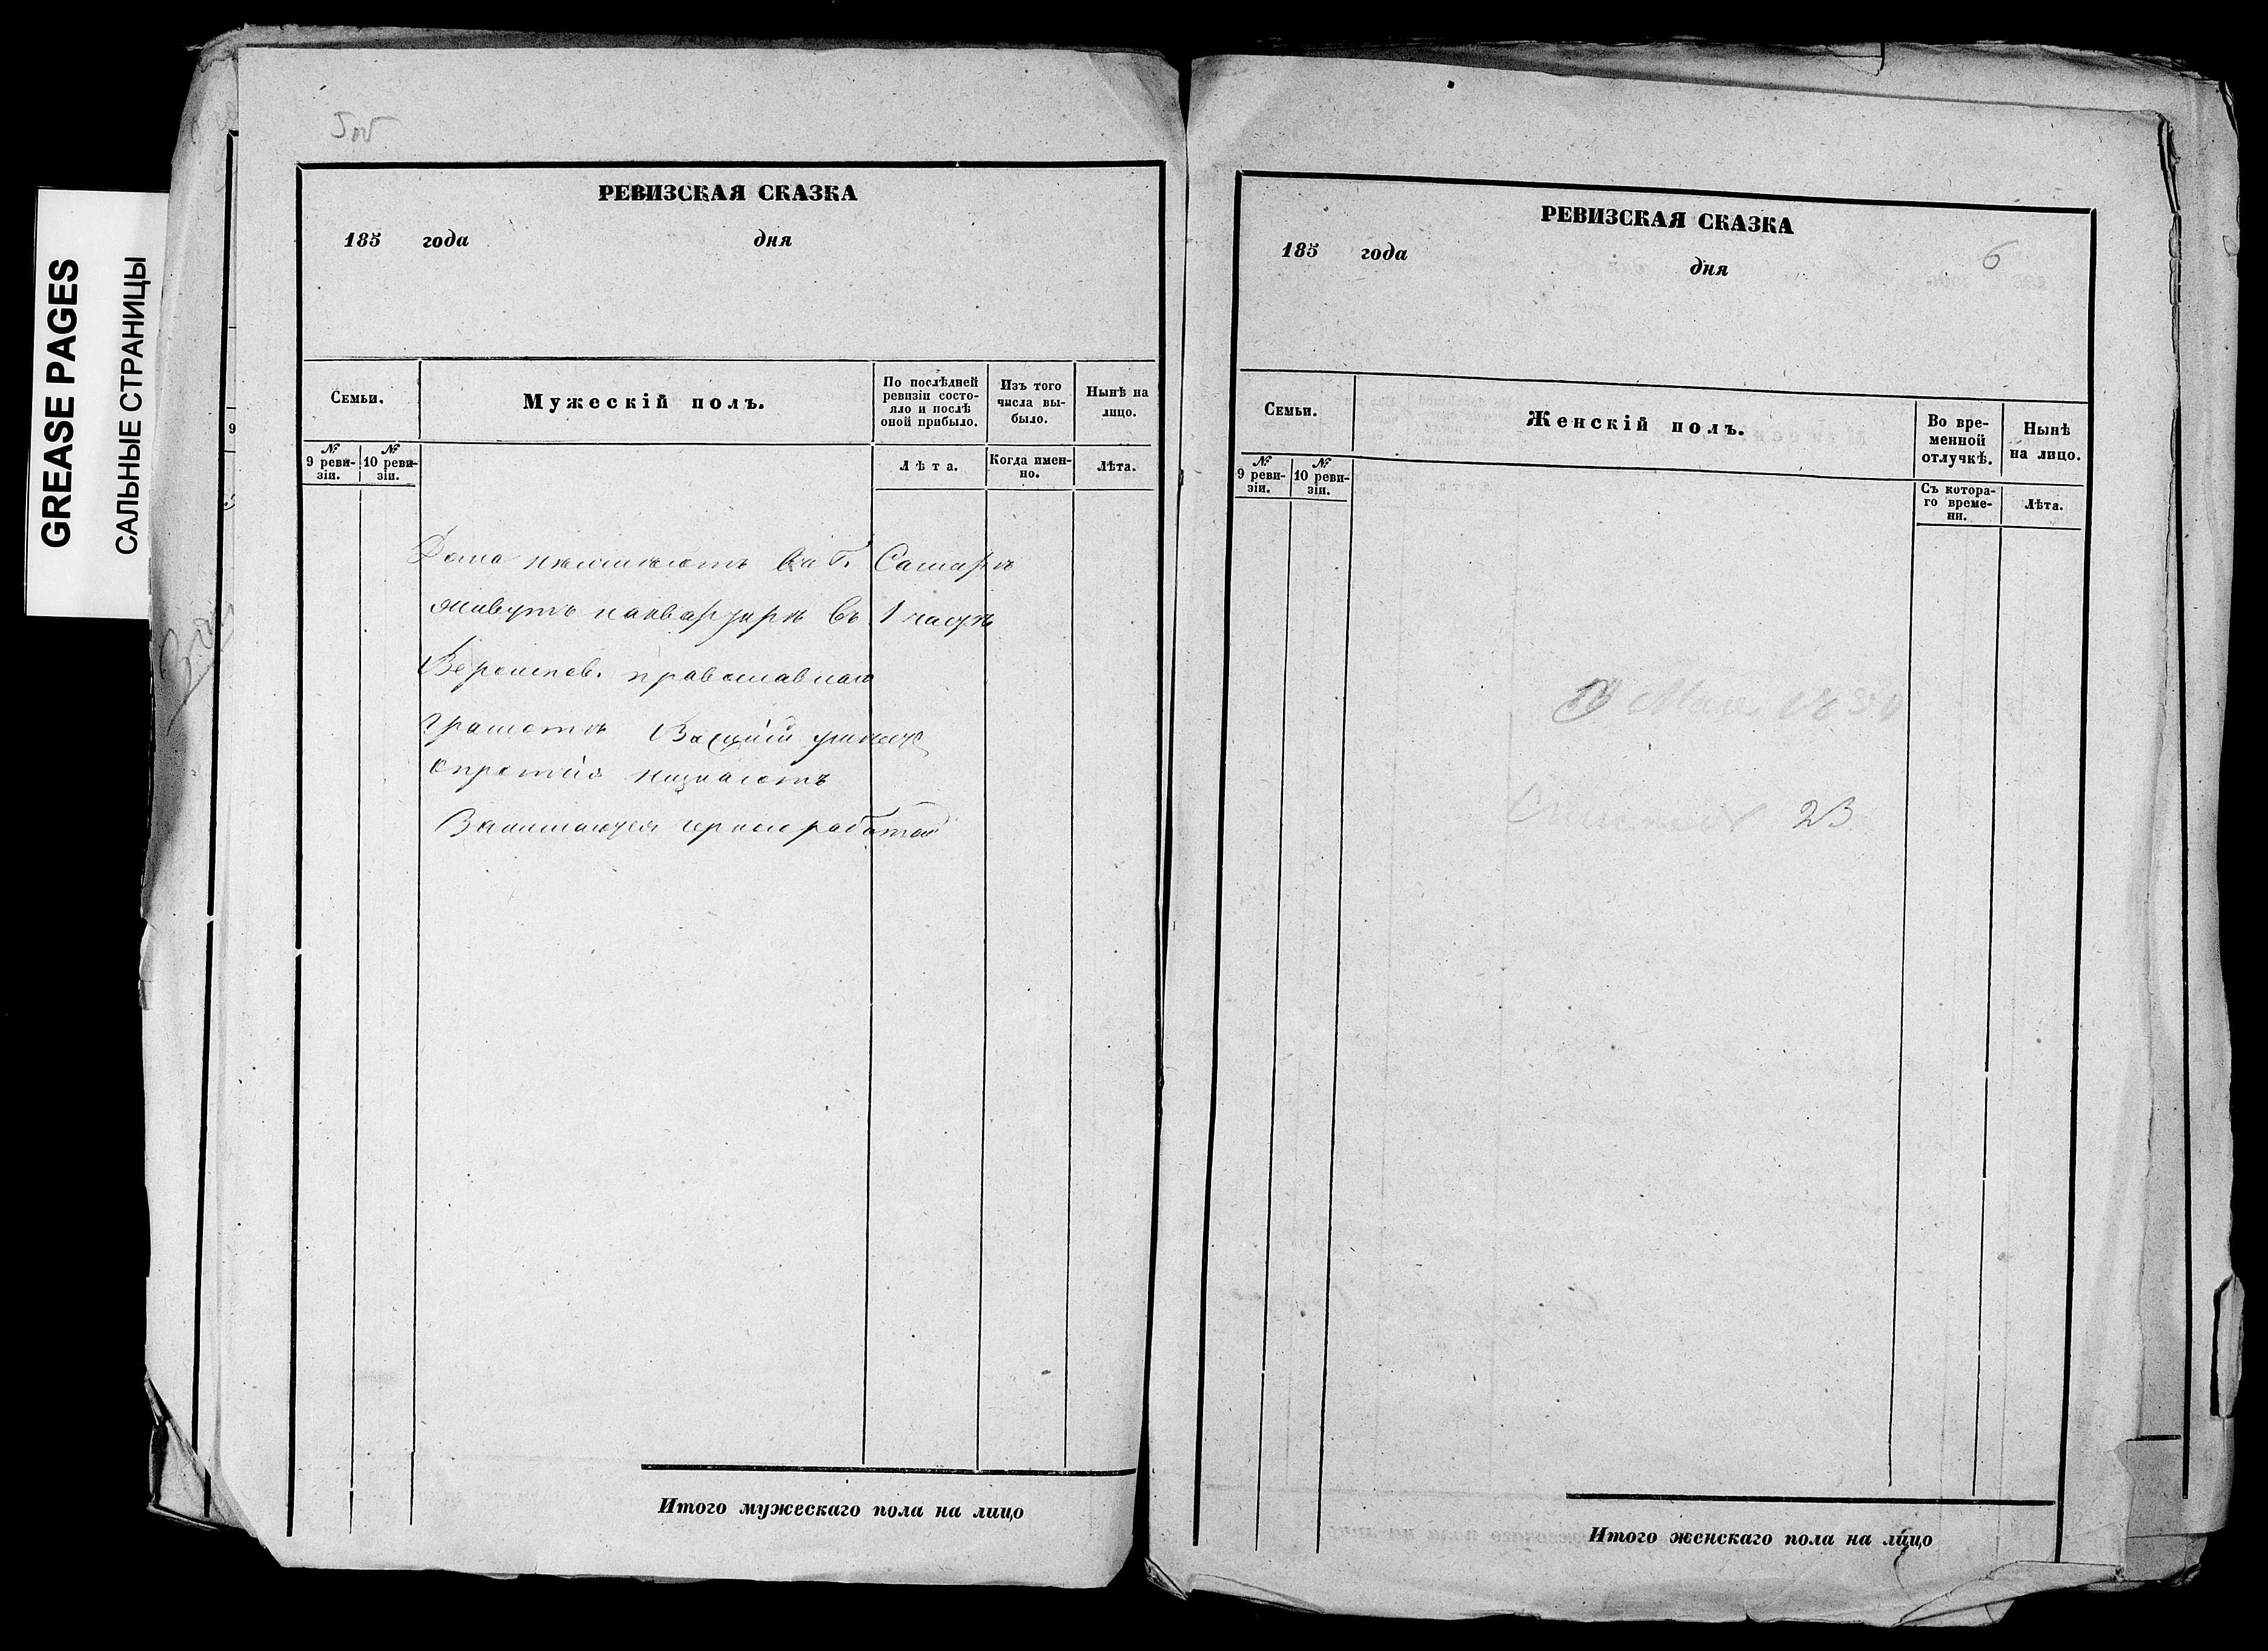 GREASE PAGES
САЛЬНЫЕ СТРАНИЦЫ
РЕВИЗСКАЯ СКАЗКА
185 года дня
Семьи.
Мужескій полъ.
По послѣдней ревизіи состояло и послѣ оной прибыло.
Изъ того числа выбыло.
Нынѣ на лицо.
№ 9 ревизіи.
№ 10 ревизіи.
Лѣта.
Когда именно.
Лѣта.
Дома неимеютъ въ Г. Самаре
живутъ наквартире въ 1 части
Вероиспов. православнаго
грамоте
незнаютъ
Занимаются черной работой
Итого мужескаго пола на лицо
РЕВИЗСКАЯ СКАЗКА
185 года дня
6
Семьи.
Женскій полъ.
Во временной отлучкѣ.
Нынѣ на лицо.
№ 9 ревизіи.
№ 10 ревизіи.
Съ котораго времени.
Лѣта.
Мая
23
Итого женскаго пола на лицо